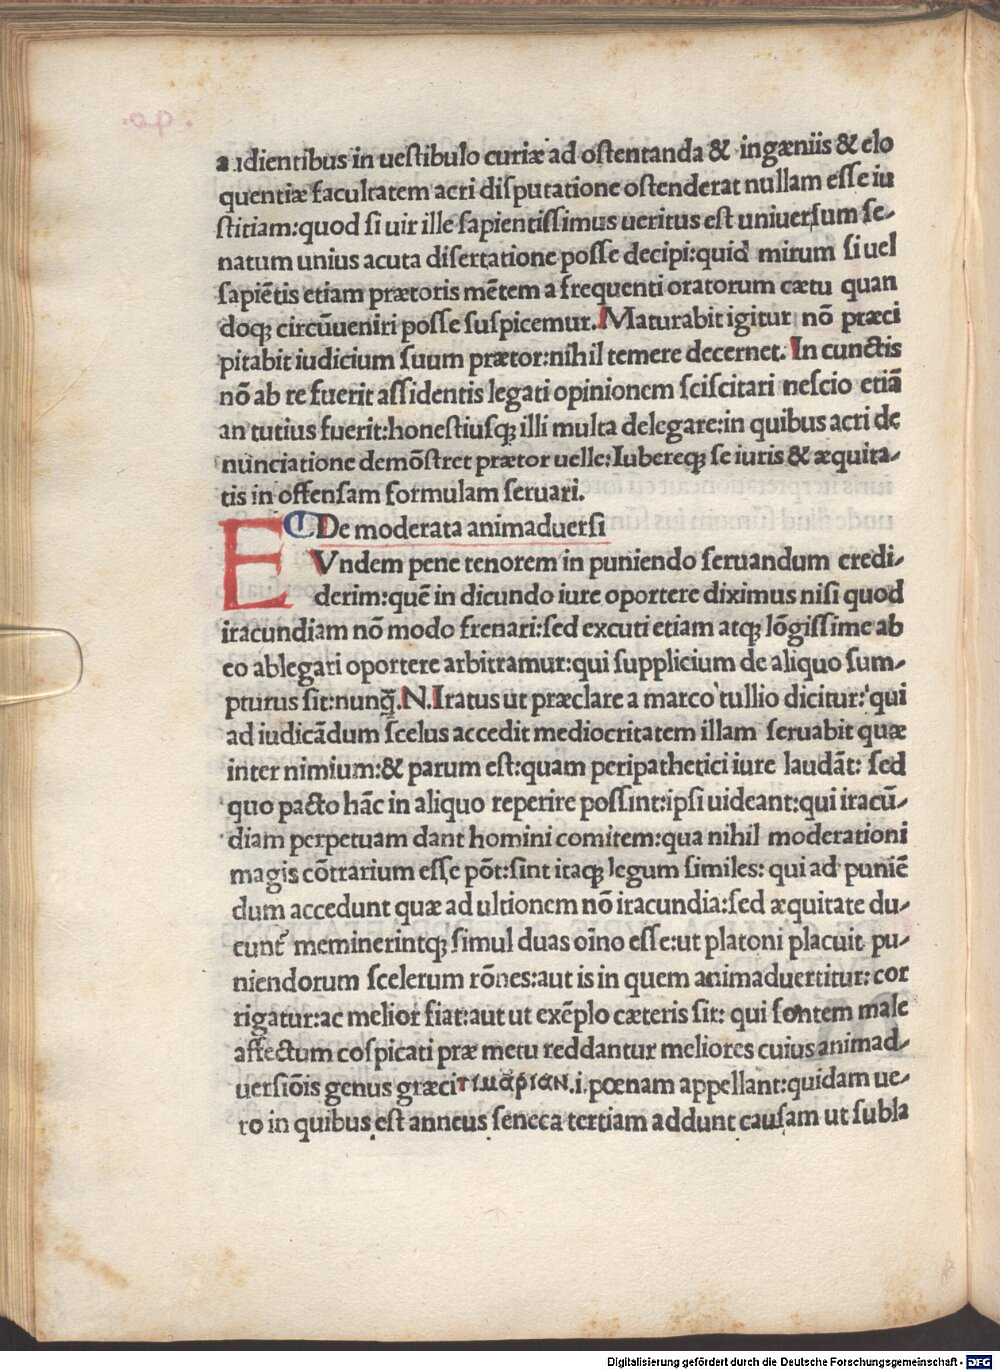 audientibus in uestibulo curiæ ad ostentanda & ingæniis & elo
quentiæ facultatem acri disputatione ostenderat nullam esse iu
stitiam:quod si uir ille sapientissimus ueritus est uniuersum se-
natum unius acuta disertatione posse decipi:quid mirum si uel
sapiẽtis etiam prætoris mẽtem a frequenti oratorum cætu quan
doqꝫ circũueniri posse suspicemur. Maturabit igitur nõ præci
pitabit iudicium suum prætor:nihil temere decernet. In cunctis
nõ ab re fuerit assidentis legati opinionem sciscitari nescio etiã
an tutius fuerit:honestiusqꝫ illi multa delegare:in quibus acri de
nunciatione demõstret prætor uelle:Iubereqꝫ se iuris & æquita-
tis in offensam formulam seruari.
De moderata animaduersi
EVndem pene tenorem in puniendo seruandum credi-
derim:quẽ in dicundo iure oportere diximus nisi quod
iracundiam nõ modo frenari:sed excuti etiam atqꝫ lõgissime ab
eo ablegari oportere arbitramur:qui supplicium de aliquo sum-
pturus sit:nunq̃.N.Iratus ut præclare a marco tullio dicitur:qui
ad iudicãdum scelus accedit mediocritatem illam seruabit quæ
inter nimium:& parum est:quam peripathetici iure laudãt: sed
quo pacto hãc in aliquo reperire possint:ipsi uideant:qui iracũ-
diam perpetuam dant homini comitem:qua nihil moderationi
magis cõtrarium esse põt:sint itaqꝫ legum similes: qui ad puniẽ
dum accedunt quæ ad ultionem nõ iracundia:sed æquitate du-
cunt᷑ meminerintqꝫ simul duas oĩno esse:ut platoni placuit pu-
niendorum scelerum rõnes:aut is in quem animaduertitur:cor
rigatur:ac melior fiat:aut ut exẽplo cæteris sit: qui fontem male
affectum cospicati præ metu reddantur meliores cuius animad-
uersiõis genus græci τιμαριαν.i.pœnam appellant:quidam ue-
ro in quibus est anneus seneca tertiam addunt causam ut subla
Digitalisierung gefördert durch die Deutsche Forschungsgemeinschaft - DFG